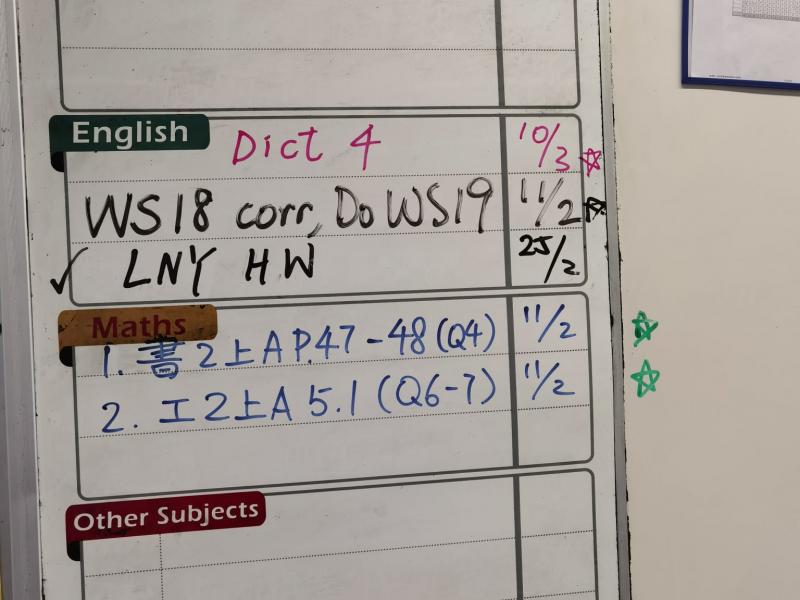 English
Dict 4 10/3 ☆
WS18 corr, Do WS19 11/2 ☆
✓ LNY HW 25/2
Maths
1. 書2上A P.47-48(Q4) 11/2 ☆
2. 工2上A 5.1(Q6-7) 11/2 ☆
Other Subjects